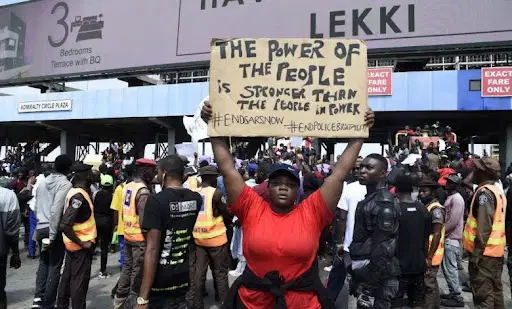 LEKKI
3
Bedrooms
Terrace with BQ
ADMIRALTY CIRCLE PLAZA
EXACT
FARE
ONLY
EXACT
FARE
ONLY
THE POWER OF
THE PEOPLE
IS STRONGER THAN
THE PEOPLE IN POWER
#ENDSARSNOW #ENDPOLICEBRUTALITY